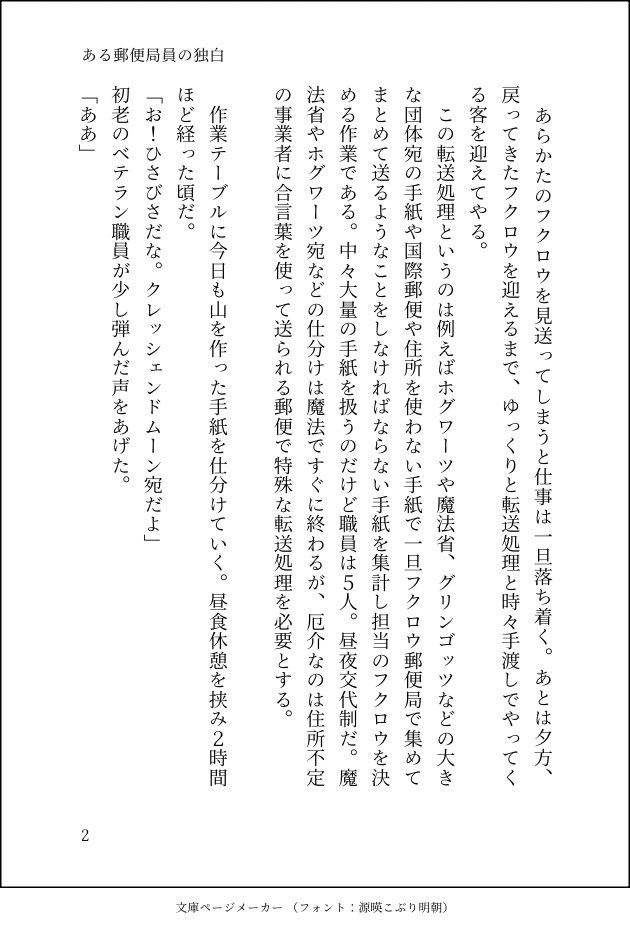 ある郵便局員の独白
　あらかたのフクロウを見送ってしまうと仕事は一旦落ち着く。あとは夕方、
戻ってきたフクロウを迎えるまで、ゆっくりと転送処理と時々手渡しでやってく
る客を迎えてやる。
　この転送処理というのは例えばホグワーツや魔法省、グリンゴッツなどの大き
な団体宛の手紙や国際郵便や住所を使わない手紙で一旦フクロウ郵便局で集めて
まとめて送るようなことをしなければならない手紙を集計し担当のフクロウを決
める作業である。中々大量の手紙を扱うのだけど職員は５人。昼夜交代制だ。魔
法省やホグワーツ宛などの仕分けは魔法ですぐに終わるが、厄介なのは住所不定
の事業者に合言葉を使って送られる郵便で特殊な転送処理を必要とする。
　作業テーブルに今日も山を作った手紙を仕分けていく。昼食休憩を挟み２時間
ほど経った頃だ。
「お！ひさびさだな。クレッシェンドムーン宛だよ」
初老のベテラン職員が少し弾んだ声をあげた。
「ああ」
2
文庫ページメーカー（フォント：源暎こぶり明朝）